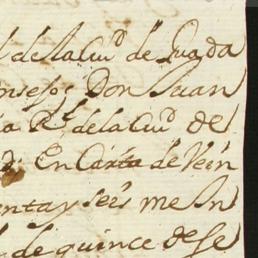 l de la Ciuᵈ de Guada
onsejos Don Juan
ia Rˡ de la Ciuᵈ de
En Carta de Vein
enta y seis me In
l de quince de Se